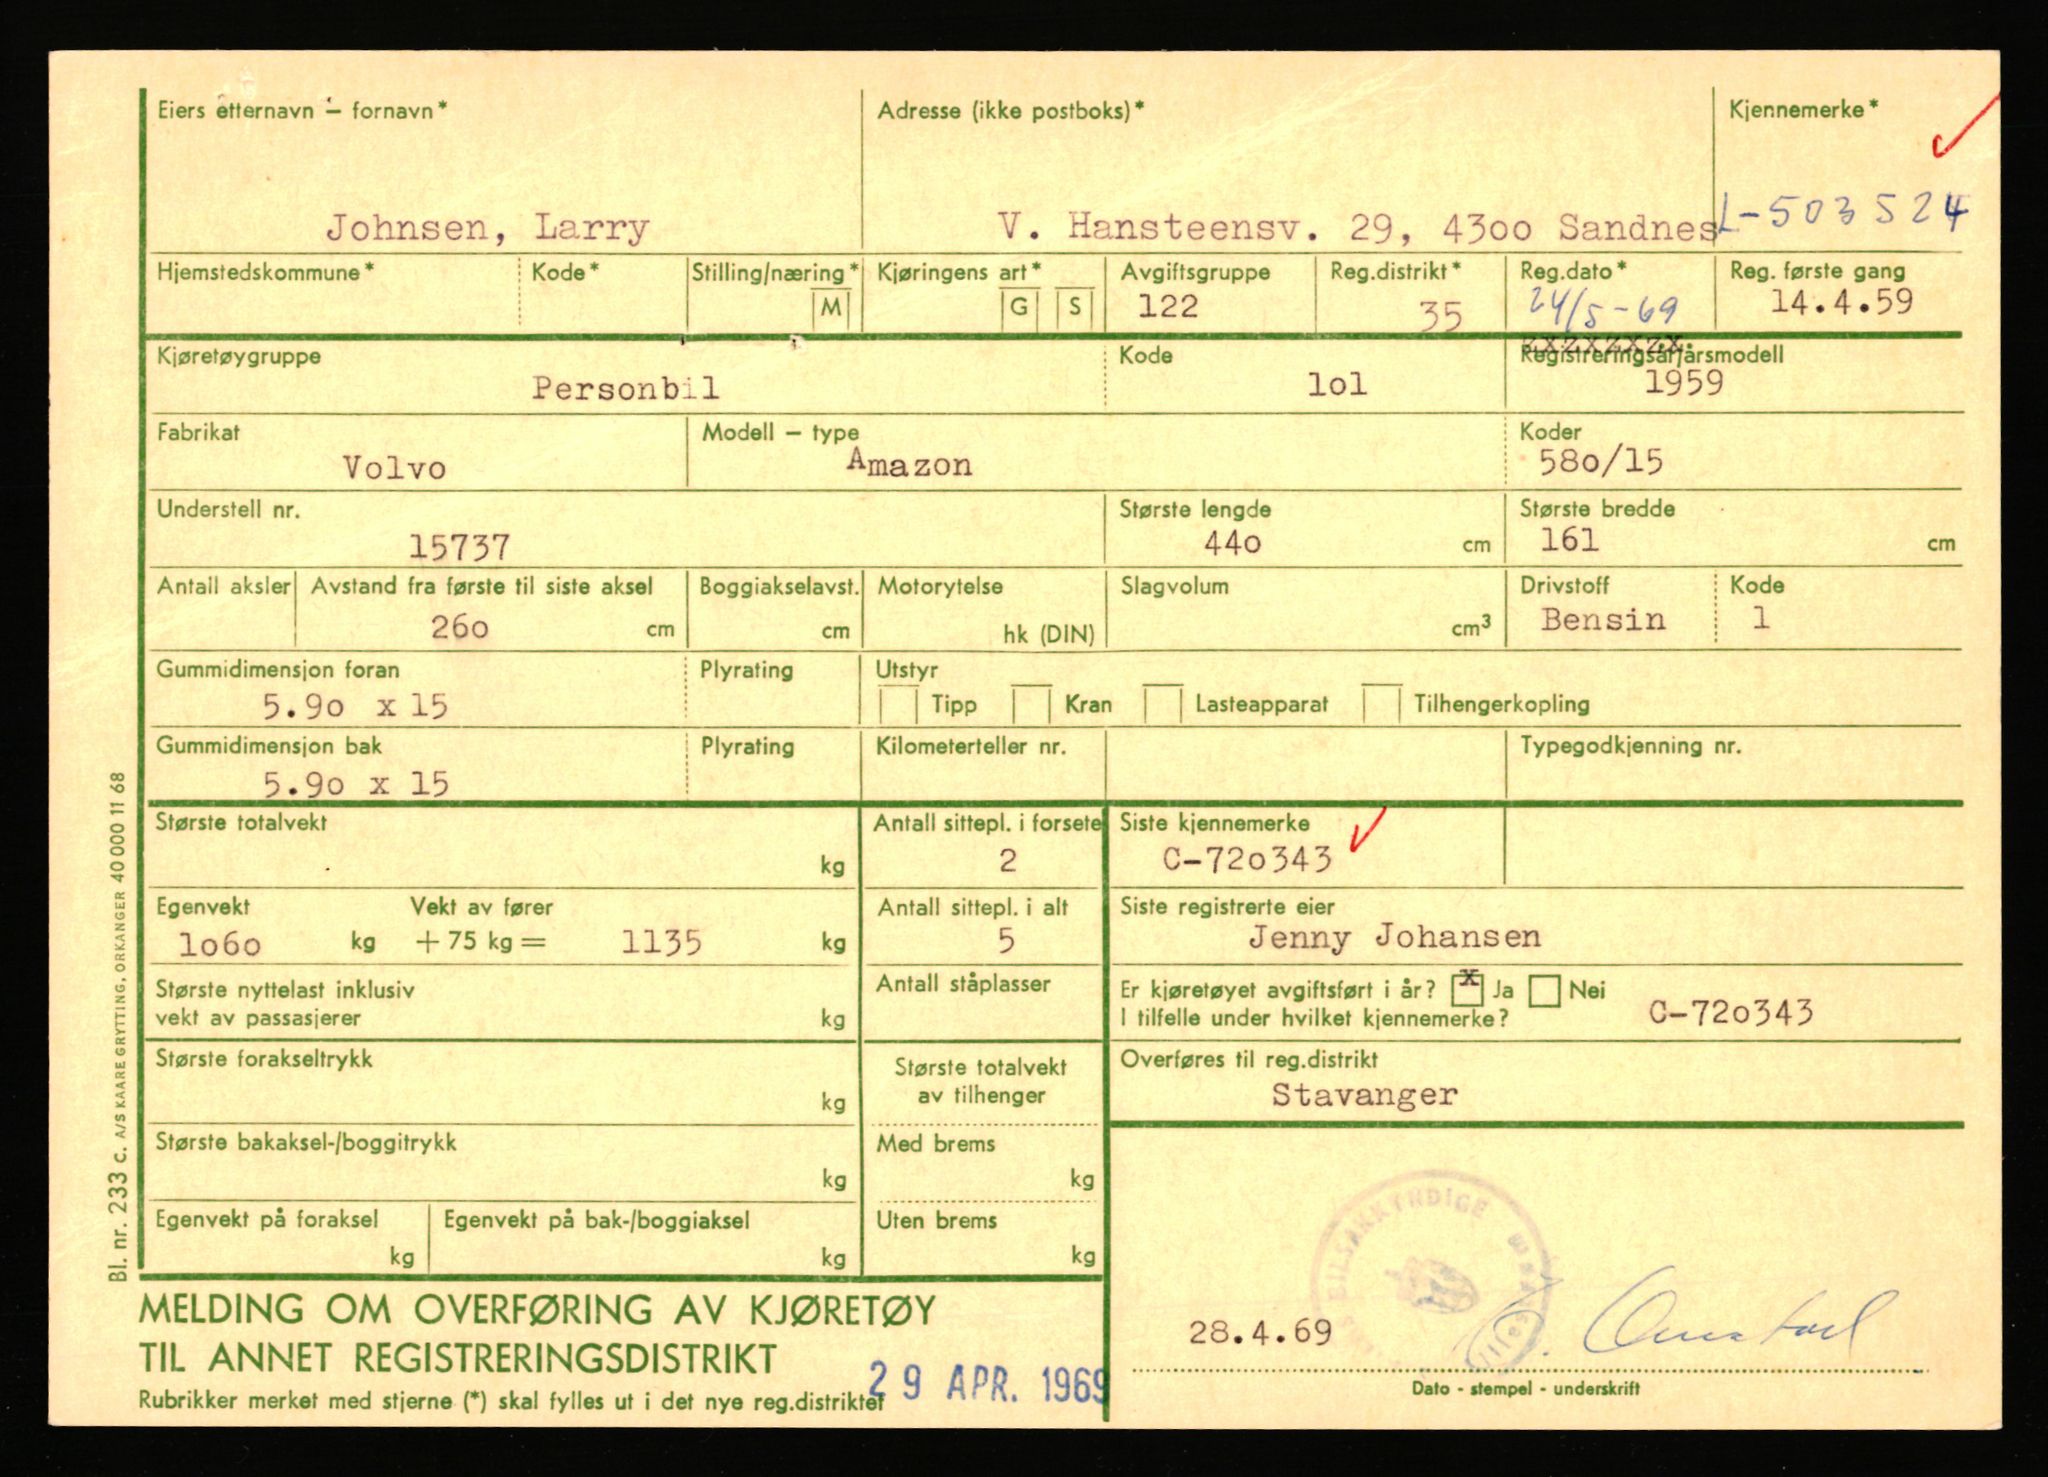 Eiers etternavn – fornavn* Adresse (ikke postboks)* Kjennemerke*
Johnsen, Larry V. Hansteensv. 29, 4300 Sandnes L-503524
Hjemstedskommune* Kode* Stilling/næring* Kjøringens art* Avgiftsgruppe Reg.distrikt* Reg.dato* Reg. første gang
M G S 122 35 24/5-69 14.4.59
Kjøretøygruppe Kode Registreringsår/årsmodell
Personbil 1o1 1959
Fabrikat Modell – type Koder
Volvo Amazon 58o/15
Understell nr. Største lengde Største bredde
15737 44o cm 161 cm
Antall aksler Avstand fra første til siste aksel Boggiakselavst. Motorytelse Slagvolum Drivstoff Kode
26o cm cm hk (DIN) cm³ Bensin 1
Gummidimensjon foran Plyrating Utstyr
5.9o x 15 Tipp Kran Lasteapparat Tilhengerkopling
Gummidimensjon bak Plyrating Kilometerteller nr. Typegodkjenning nr.
5.9o x 15
Største totalvekt Antall sittepl. i forsete Siste kjennemerke
kg 2 C-72o343
Egenvekt Vekt av fører Antall sittepl. i alt Siste registrerte eier
1o6o kg + 75 kg = 1135 kg 5 Jenny Johansen
Største nyttelast inklusiv Antall ståplasser Er kjøretøyet avgiftsført i år? x Ja Nei
vekt av passasjerer kg I tilfelle under hvilket kjennemerke? C-72o343
Største forakseltrykk Største totalvekt Overføres til reg.distrikt
kg av tilhenger Stavanger
Største bakaksel-/boggitrykk Med brems
kg kg
Egenvekt på foraksel Egenvekt på bak-/boggiaksel Uten brems
kg kg kg
BILSAKKYNDIGE
MELDING OM OVERFØRING AV KJØRETØY
TIL ANNET REGISTRERINGSDISTRIKT
28.4.69
Rubrikker merket med stjerne (*) skal fylles ut i det nye reg.distriktet 29 APR. 1969 Dato - stempel - underskrift
Bl. nr. 233 c. A/S KAARE GRYTTING, ORKANGER 40 000 11 68